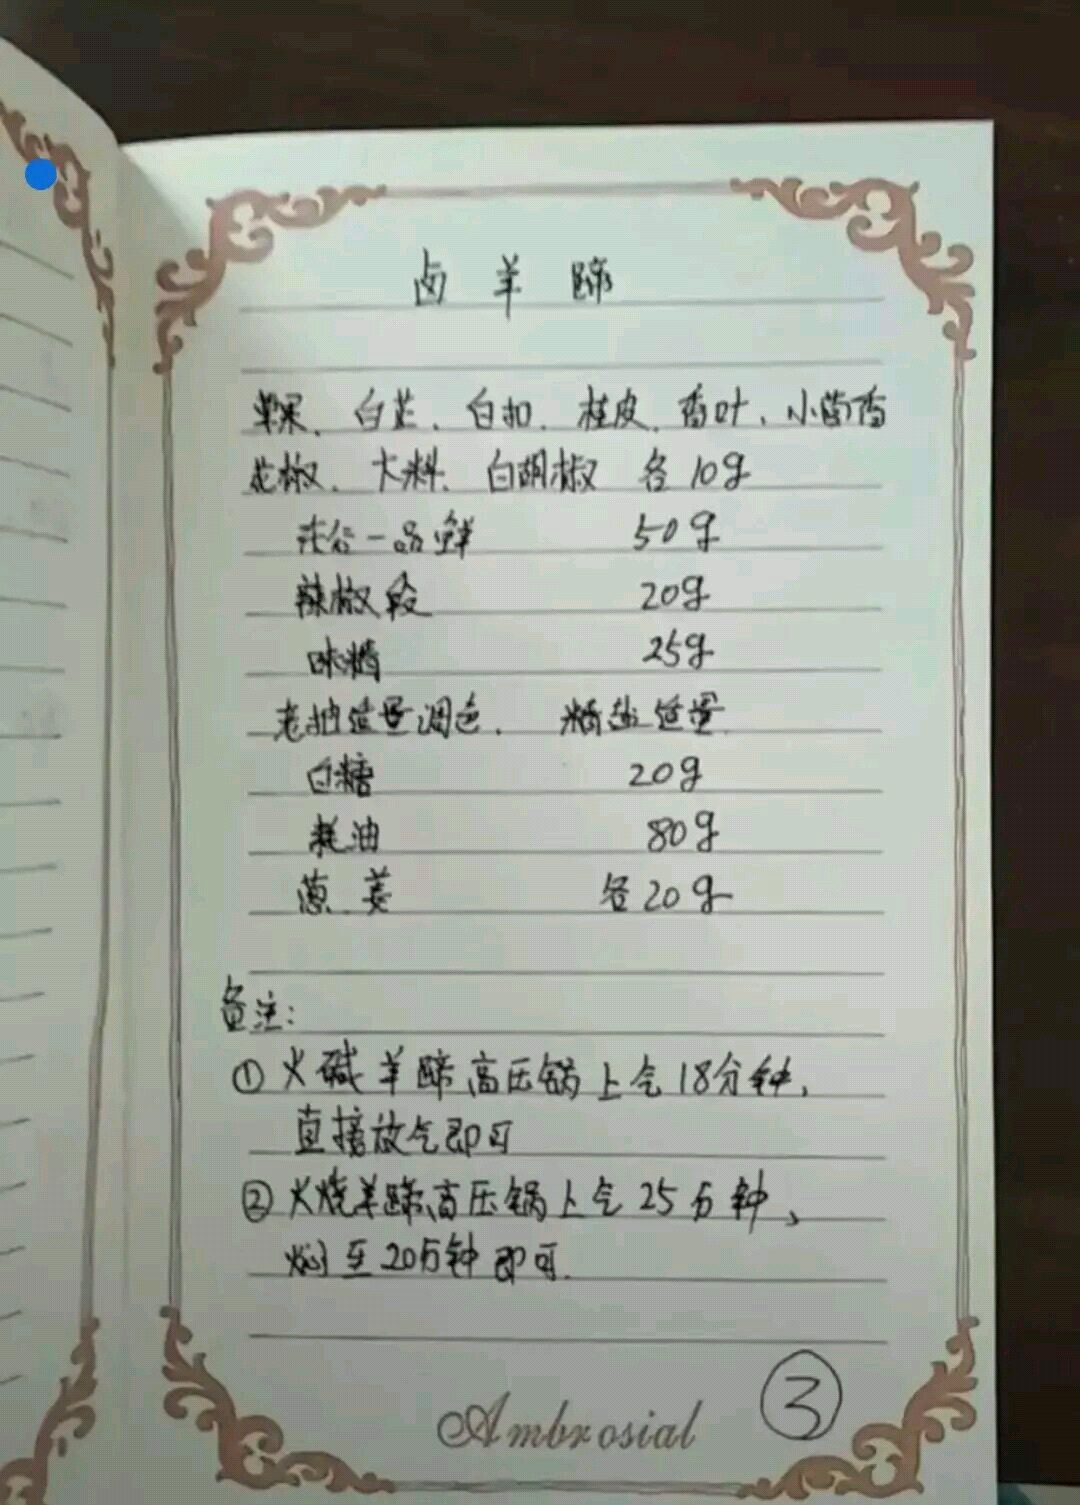 卤羊蹄
草果、白芷、白扣、桂皮、香叶、小茴香
花椒、大料、白胡椒 各10g
味精 25g
辣椒段 20g
老抽适量调色、精盐适量
白糖 20g
耗油 80g
葱、姜 各20g
备注:
①火碱羊蹄高压锅上气18分钟,
直接放气即可
②火烧羊蹄高压锅上气25分钟、
焖至20分钟即可.
Ambrosial
③